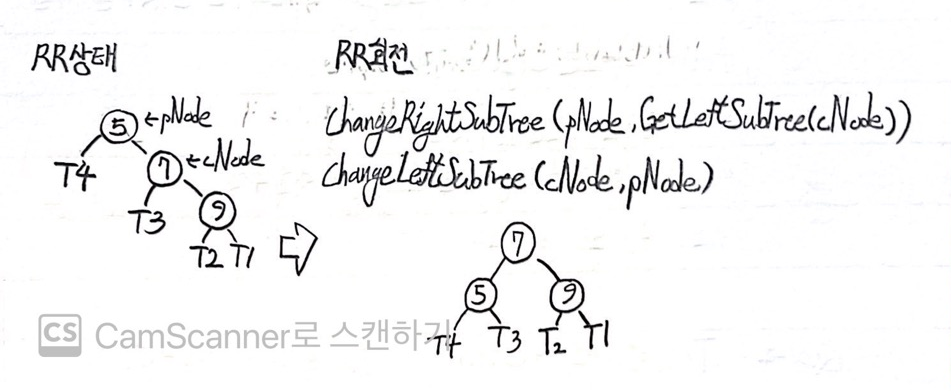 RR상태
RR회전
5 ←pNode
T4
7 ←cNode
T3
9
T2 T1
ChangeRightSubTree (pNode, GetLeftSubTree(cNode))
ChangeLeftSubTree (cNode, pNode)
7
5 9
T4 T3 T2 T1
CS CamScanner로 스캔하기